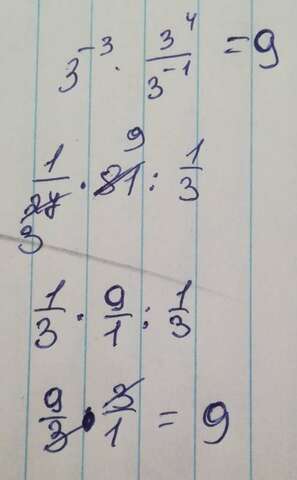 3⁻³ · 3⁴/3⁻¹ = 9
1/27 · 81 : 1/3
3 9
1/3 · 9/1 : 1/3
9/3 · 3/1 = 9